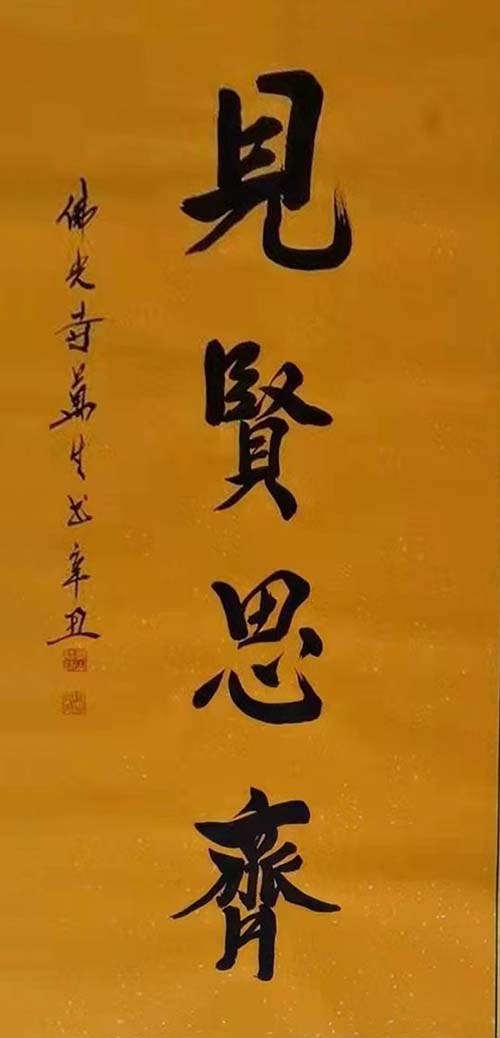 見賢思齊
佛光寺萬生书辛丑